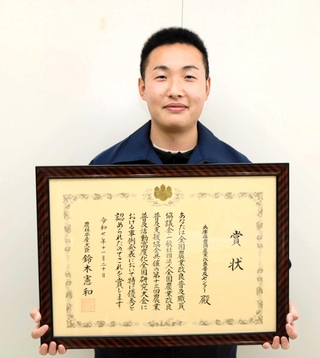 賞状
兵庫県豊岡農業改良普及センター 殿
あなたは全国農業改良普及職員
協議会一般社団法人全国農業改良
普及支援協会共催の第十三回農業
普及活動高度化全国研究大会に
おける事例発表において特に優秀と
認められたのでこれを賞します
令和七年十一月二十日
農林水産大臣 鈴木憲和